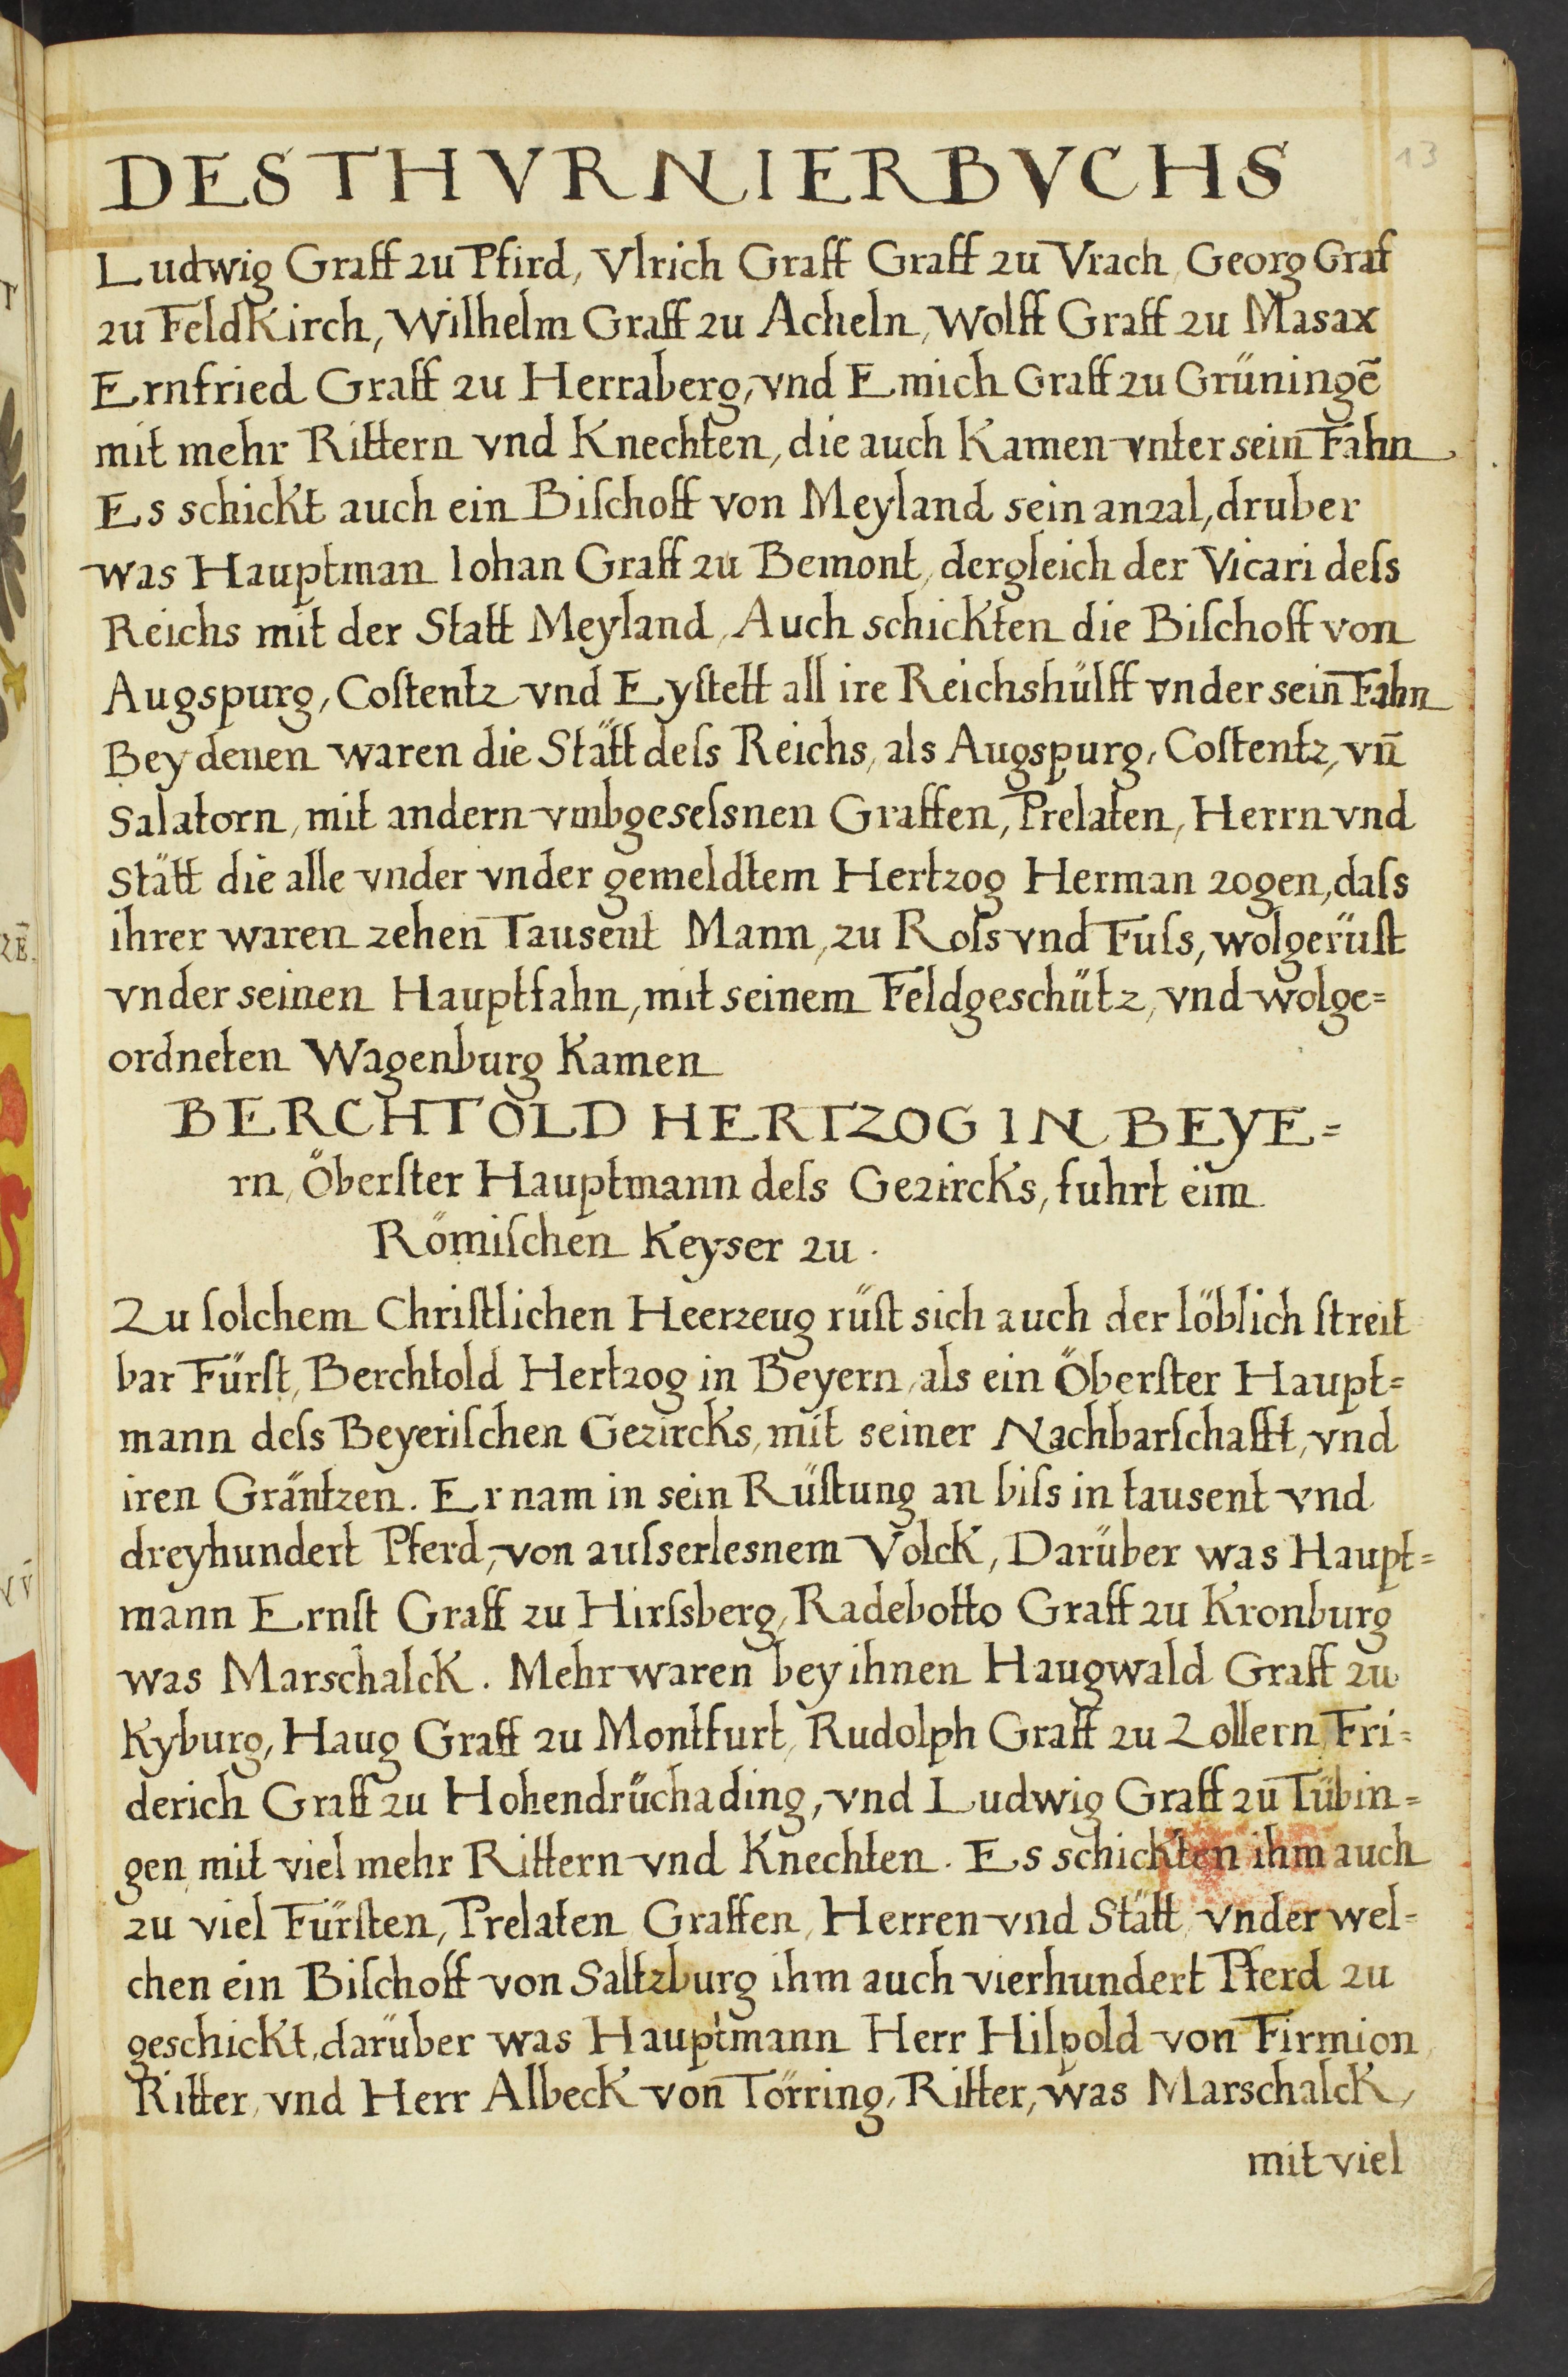 13
DES THVRNIERBVCHS
Ludwig Graff zu Pfird, Vlrich Graff Graff zu Vrach, Georg Graf
zu Feldkirch, Wilhelm Graff zu Acheln, Wolff Graff zu Masax
Ernfried Graff zu Herraberg, vnd Emich Graff zu Grüningē
mit mehr Rittern vnd Knechten, die auch Kamen vnter sein Fahn
Es schickt auch ein Biſchoff von Meyland sein anzal, druber
was Hauptman Iohan Graff zu Bemont, dergleich der Vicari deſs
Reichs mit der Statt Meyland, Auch schickten die Biſchoff von
Augspurg, Coſtentz vnd Eyſtett all ire Reichshülff vnder sein Fahn
Bey denen waren die Stätt deſs Reichs, als Augspurg, Coſtentz, vn̄
Salatorn, mit andern vmbgeseſsnen Graffen, Prelaten, Herrn vnd
Stätt die alle vnder vnder gemeldtem Hertzog Herman zogen, daſs
ihrer waren zehen Tausent Mann, zu Roſs vnd Fuſs, wolgerüſt
vnder seinen Hauptfahn, mit seinem Feldgeschütz, vnd wolge=
ordneten Wagenburg Kamen
BERCHTOLD HERTZOG IN BEYE=
rn, Öberſter Hauptmann deſs Gezircks, fuhrt eim
Römiſchen Keyser zu.
Zu ſolchem Chriſtlichen Heerzeug rüſt sich auch der löblich ſtreit
bar Fürſt, Berchtold Hertzog in Beyern, als ein Öberſter Haupt=
mann deſs Beyeriſchen Gezircks, mit seiner Nachbarſchafft, vnd
iren Gräntzen. Er nam in sein Rüſtung an biſs in tausent vnd
dreyhundert Pferd, von auſserlesnem Volck, Darüber was Haupt=
mann Ernſt Graff zu Hirſsberg, Radebotto Graff zu Kronburg
was Marschalck. Mehr waren bey ihnen Haugwald Graff zu
Kyburg, Haug Graff zu Montfurt, Rudolph Graff zu Zollern, Fri=
derich Graff zu Hohendrüchading, vnd Ludwig Graff zu Tübin=
gen, mit viel mehr Rittern vnd Knechten. Es schickten ihm auch
zu viel Fürſten, Prelaten, Graffen, Herren vnd Stätt, vnder wel=
chen ein Biſchoff von Saltzburg ihm auch vierhundert Pferd zu
geschickt, darüber was Hauptmann Herr Hilpold von Firmion,
Ritter, vnd Herr Albeck von Törring, Ritter, was Marschalck,
mit viel